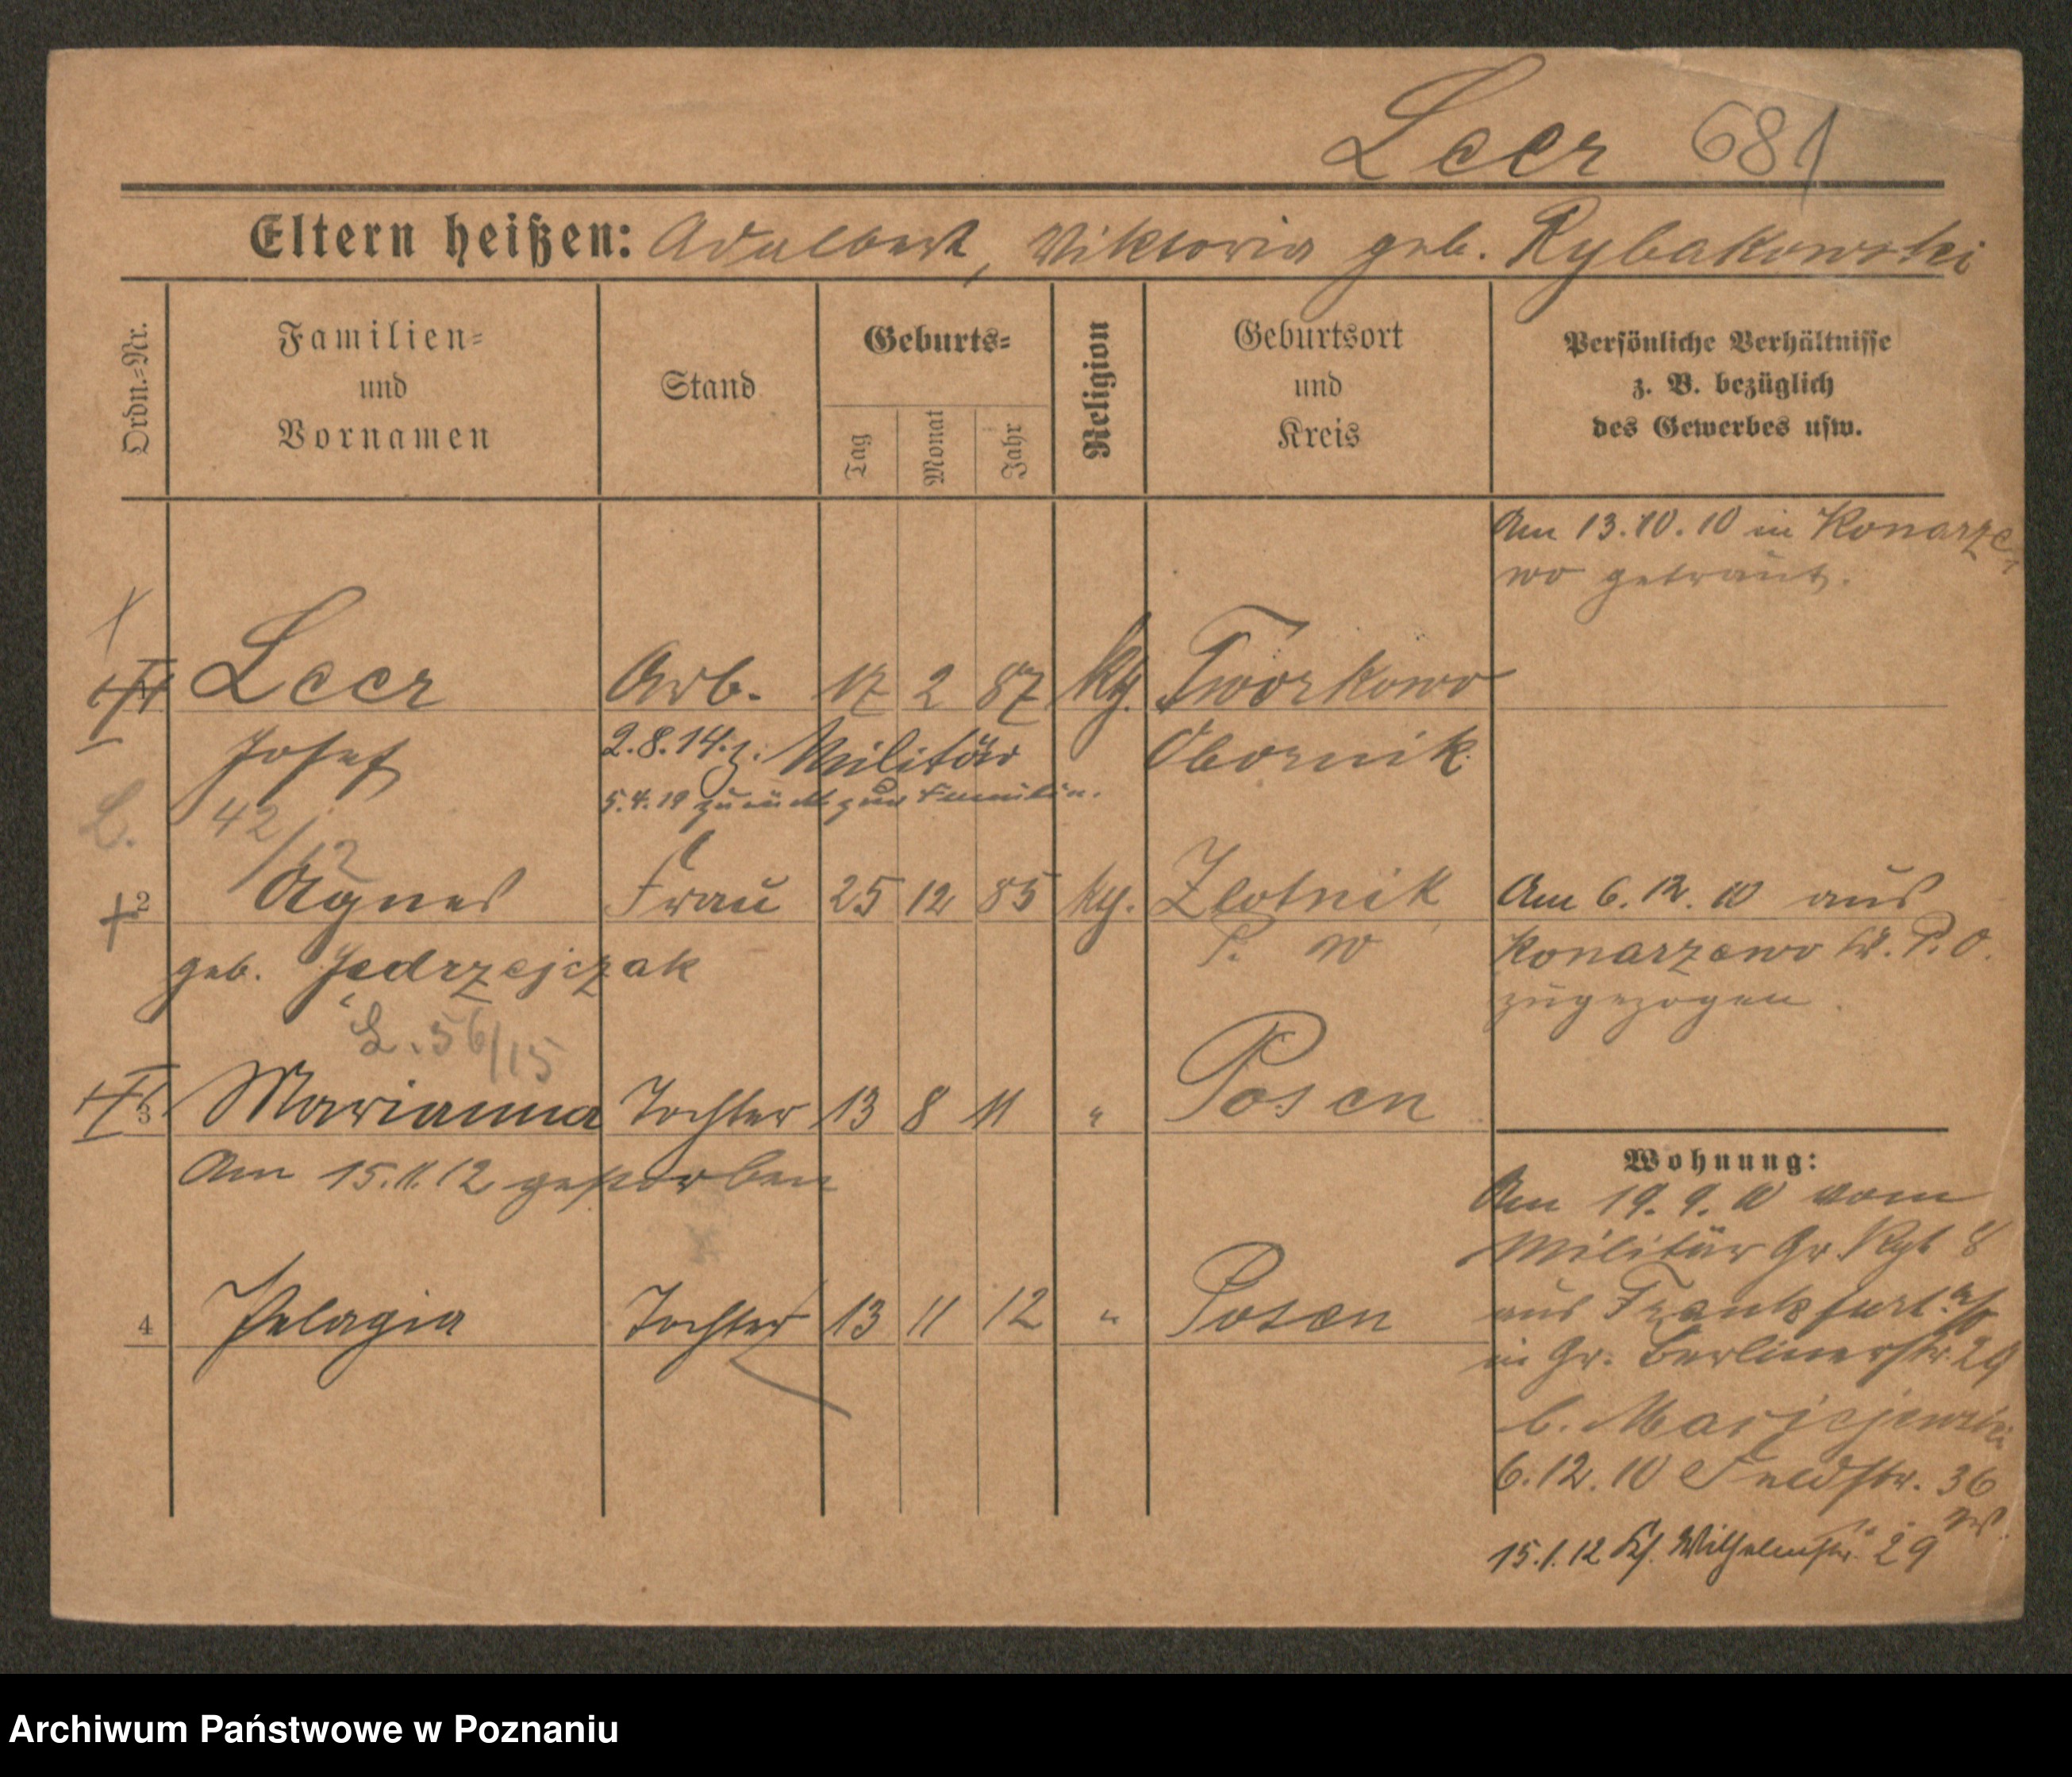 Leer 681
Eltern heißen: Adalbert, Viktoria geb. Rybakowski
Ordn.-Nr.
Familien-
und
Vornamen
Stand
Geburts-
Tag
Monat
Jahr
Religion
Geburtsort
und
Kreis
Persönliche Verhältnisse
z. B. bezüglich
des Gewerbes usw.
Am 13.10.10 in Konarze-
wo getraut.
1 Leer Arb. 17 2 87 kg. Tworkowo
Josef 2.8.14 z. Militär Obornik
5.4.19 zurück zur Familie.
L. 42/12
2 Agnes Frau 25 12 85 kg. Zlotnik Am 6.12.10 aus
geb. Jedrzejczak P. W Konarzewo Kr. P. O.
zugezogen
L. 56/15
3 Marianna Tochter 13 8 11 " Posen
Am 15.11.12 gestorben
4 Pelagia Tochter 13 11 12 " Posen
Wohnung:
Am 19.9.10 vom
Militär Gr. Rgt 8
aus Frankfurt a/O
in Gr. Berlinerstr. 29
b.
6.12.10 Feldstr. 36
15.1.12 Kl. Wilhelmstr. 29
Archiwum Państwowe w Poznaniu